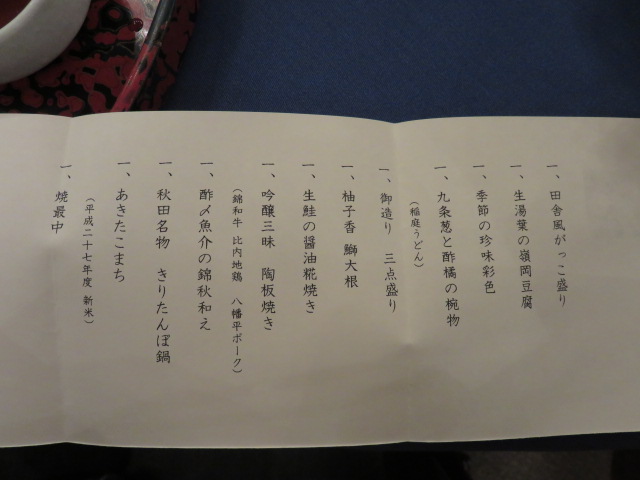 一、田舎風がっこ盛り
一、生湯葉の嶺岡豆腐
一、季節の珍味彩色
一、九条葱と酢橘の椀物
（稲庭うどん）
一、御造り　三点盛り
一、柚子香　鰤大根
一、生鮭の醤油糀焼き
一、吟醸三昧　陶板焼き
（錦和牛　比内地鶏　八幡平ポーク）
一、酢〆魚介の錦秋和え
一、秋田名物　きりたんぽ鍋
一、あきたこまち
（平成二十七年度　新米）
一、焼最中